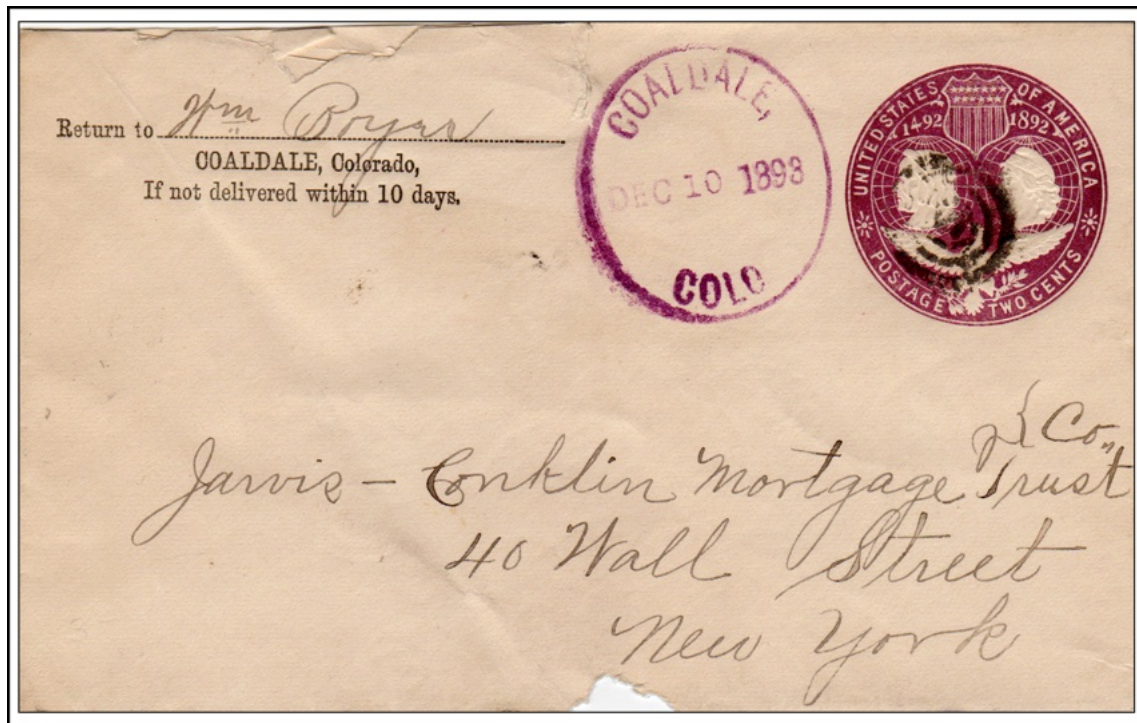 Return to Wm Boyer
COALDALE, Colorado,
If not delivered within 10 days.
COALDALE,
DEC 10 1893
COLO
UNITED STATES OF AMERICA
1492 1892
POSTAGE TWO CENTS
Jarvis - Conklin Mortgage Trust Co,,
40 Wall Street
New York